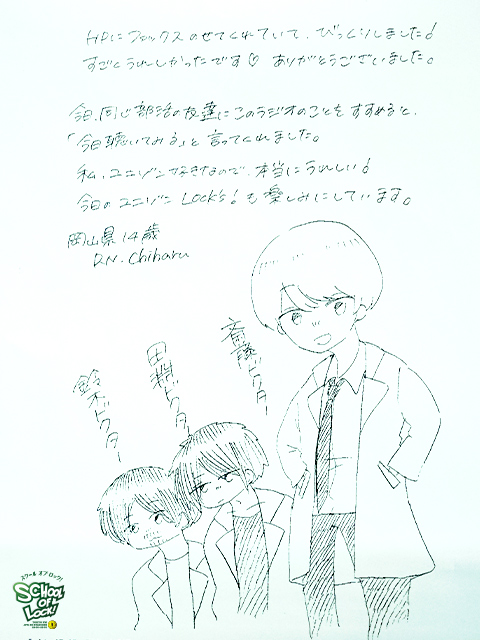 HPにファックスのせてくれていて、びっくりしました!
すごくうれしかったです♡ ありがとうございました。
今日、同じ部活の友達にこのラジオのことをすすめると、
「今日聴いてみる」と言ってくれました。
私、ユニゾン好きなので、本当にうれしい!
今日のユニゾン Lock's! も楽しみにしています。
岡山県 14歳
R.N. Chiharu
斎藤ドクター
田淵ドクター
鈴木ドクター
スクール オブ ロック!
SCHOOL OF LOCK!